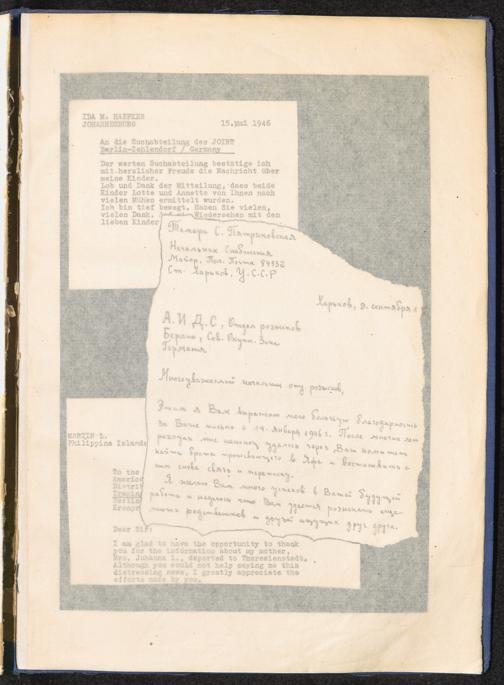 IDA M. HAEFKER
JOHANNESBURG 15.Mai 1946
An die Suchabteilung des JOINT
Berlin-Zehlendorf / Germany
Der werten Suchabteilung bestätige ich
mit herzlicher Freude die Nachricht über
meine Kinder.
Lob und Dank der Mitteilung, dass beide
Kinder Lotte und Annette von Ihnen nach
vielen Mühen ermittelt wurden.
Ich bin tief bewegt. Haben Sie vielen,
vielen Dank, Wiedersehen mit den
lieben Kinder
Тамара С.
Начальник Снабжения
Майор, Пол. Почта 84932
Ст. Харьков, У.С.С.Р
Харьков, 9. сентября
А.И.Д.С, Отдел розысков
Берлин, Сов. Оккуп. Зона
Германия
Многоуважаемый начальник отд. розысков,
Этим я Вам выражаю мою большую благодарность
за Ваше письмо от 14. января 1946 г. После многих лет
разлуки мне наконец удалось через Вас
найти брата проживающего в и восстановить с
ним снова связь и переписку.
Я желаю Вам много успехов в Вашей будущей
работе и надеюсь что Вам удастся розыскать еще
много родственников и друзей ищущих друг друга.
MARTIN L.
Philippine Islands
To the
Americ
Distri
Berlin
Dear Sir:
I am glad to have the opportunity to thank
you for the information about my mother,
Mrs. Johanna L., deported to Theresienstadt.
Although you could not help saying me this
distressing news, I greatly appreciate the
efforts made by you.